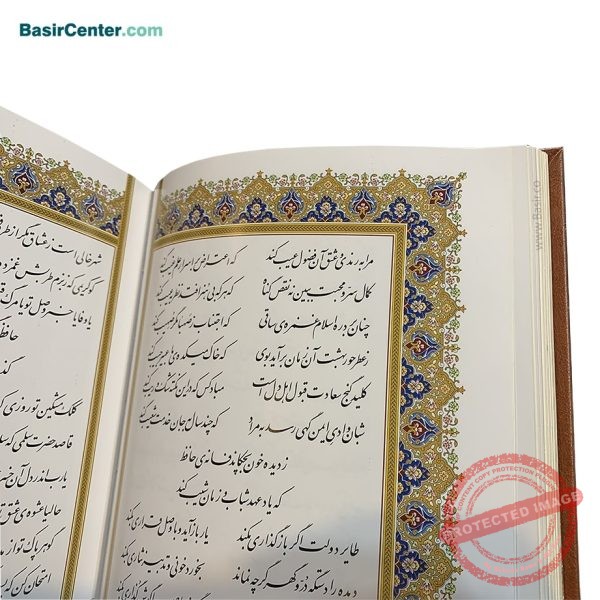 BasirCenter.com
مرا به رندی و عشق آن فضول عیب کند که اعتراض بر اسرار علم غیب کند
کمال سر محبت ببین نه نقص گناه که هر که بی هنر افتد نظر به عیب کند
چنان بزد ره اسلام غمزه ساقی که اجتناب ز صهبا مگر صهیب کند
ز عطر حور بهشت آن زمان برآید بوی که خاک میکده ما عبیر جیب کند
کلید گنج سعادت قبول اهل دل است مباد کس که در این نکته شک و ریب کند
شبان وادی ایمن گهی رسد به مراد که چند سال به جان خدمت شعیب کند
ز دیده خون بچکاند فسانه حافظ
که یاد عهد شباب و زمان شیب کند
طایر دولت اگر باز گذاری بکند یار باز آید و با وصل قراری بکند
دیده را دستگه در و گهر گرچه نماند بخورد خونی و تدبیر نثاری بکند
شهر خالی است ز عشاق مگر کز طرفی
کو کریمی که ز بزم طربش غمزده
یا وفا یا خبر وصل تو یا مرگ
حافظ
کلک مشکین تو روزی که
قاصد حضرت سلمی که
یارب اندر دل آن
حالیا عشوه عشق
گوهر پاک تو از
امتحان کن که
www.Basir.co
PROTECTED IMAGE